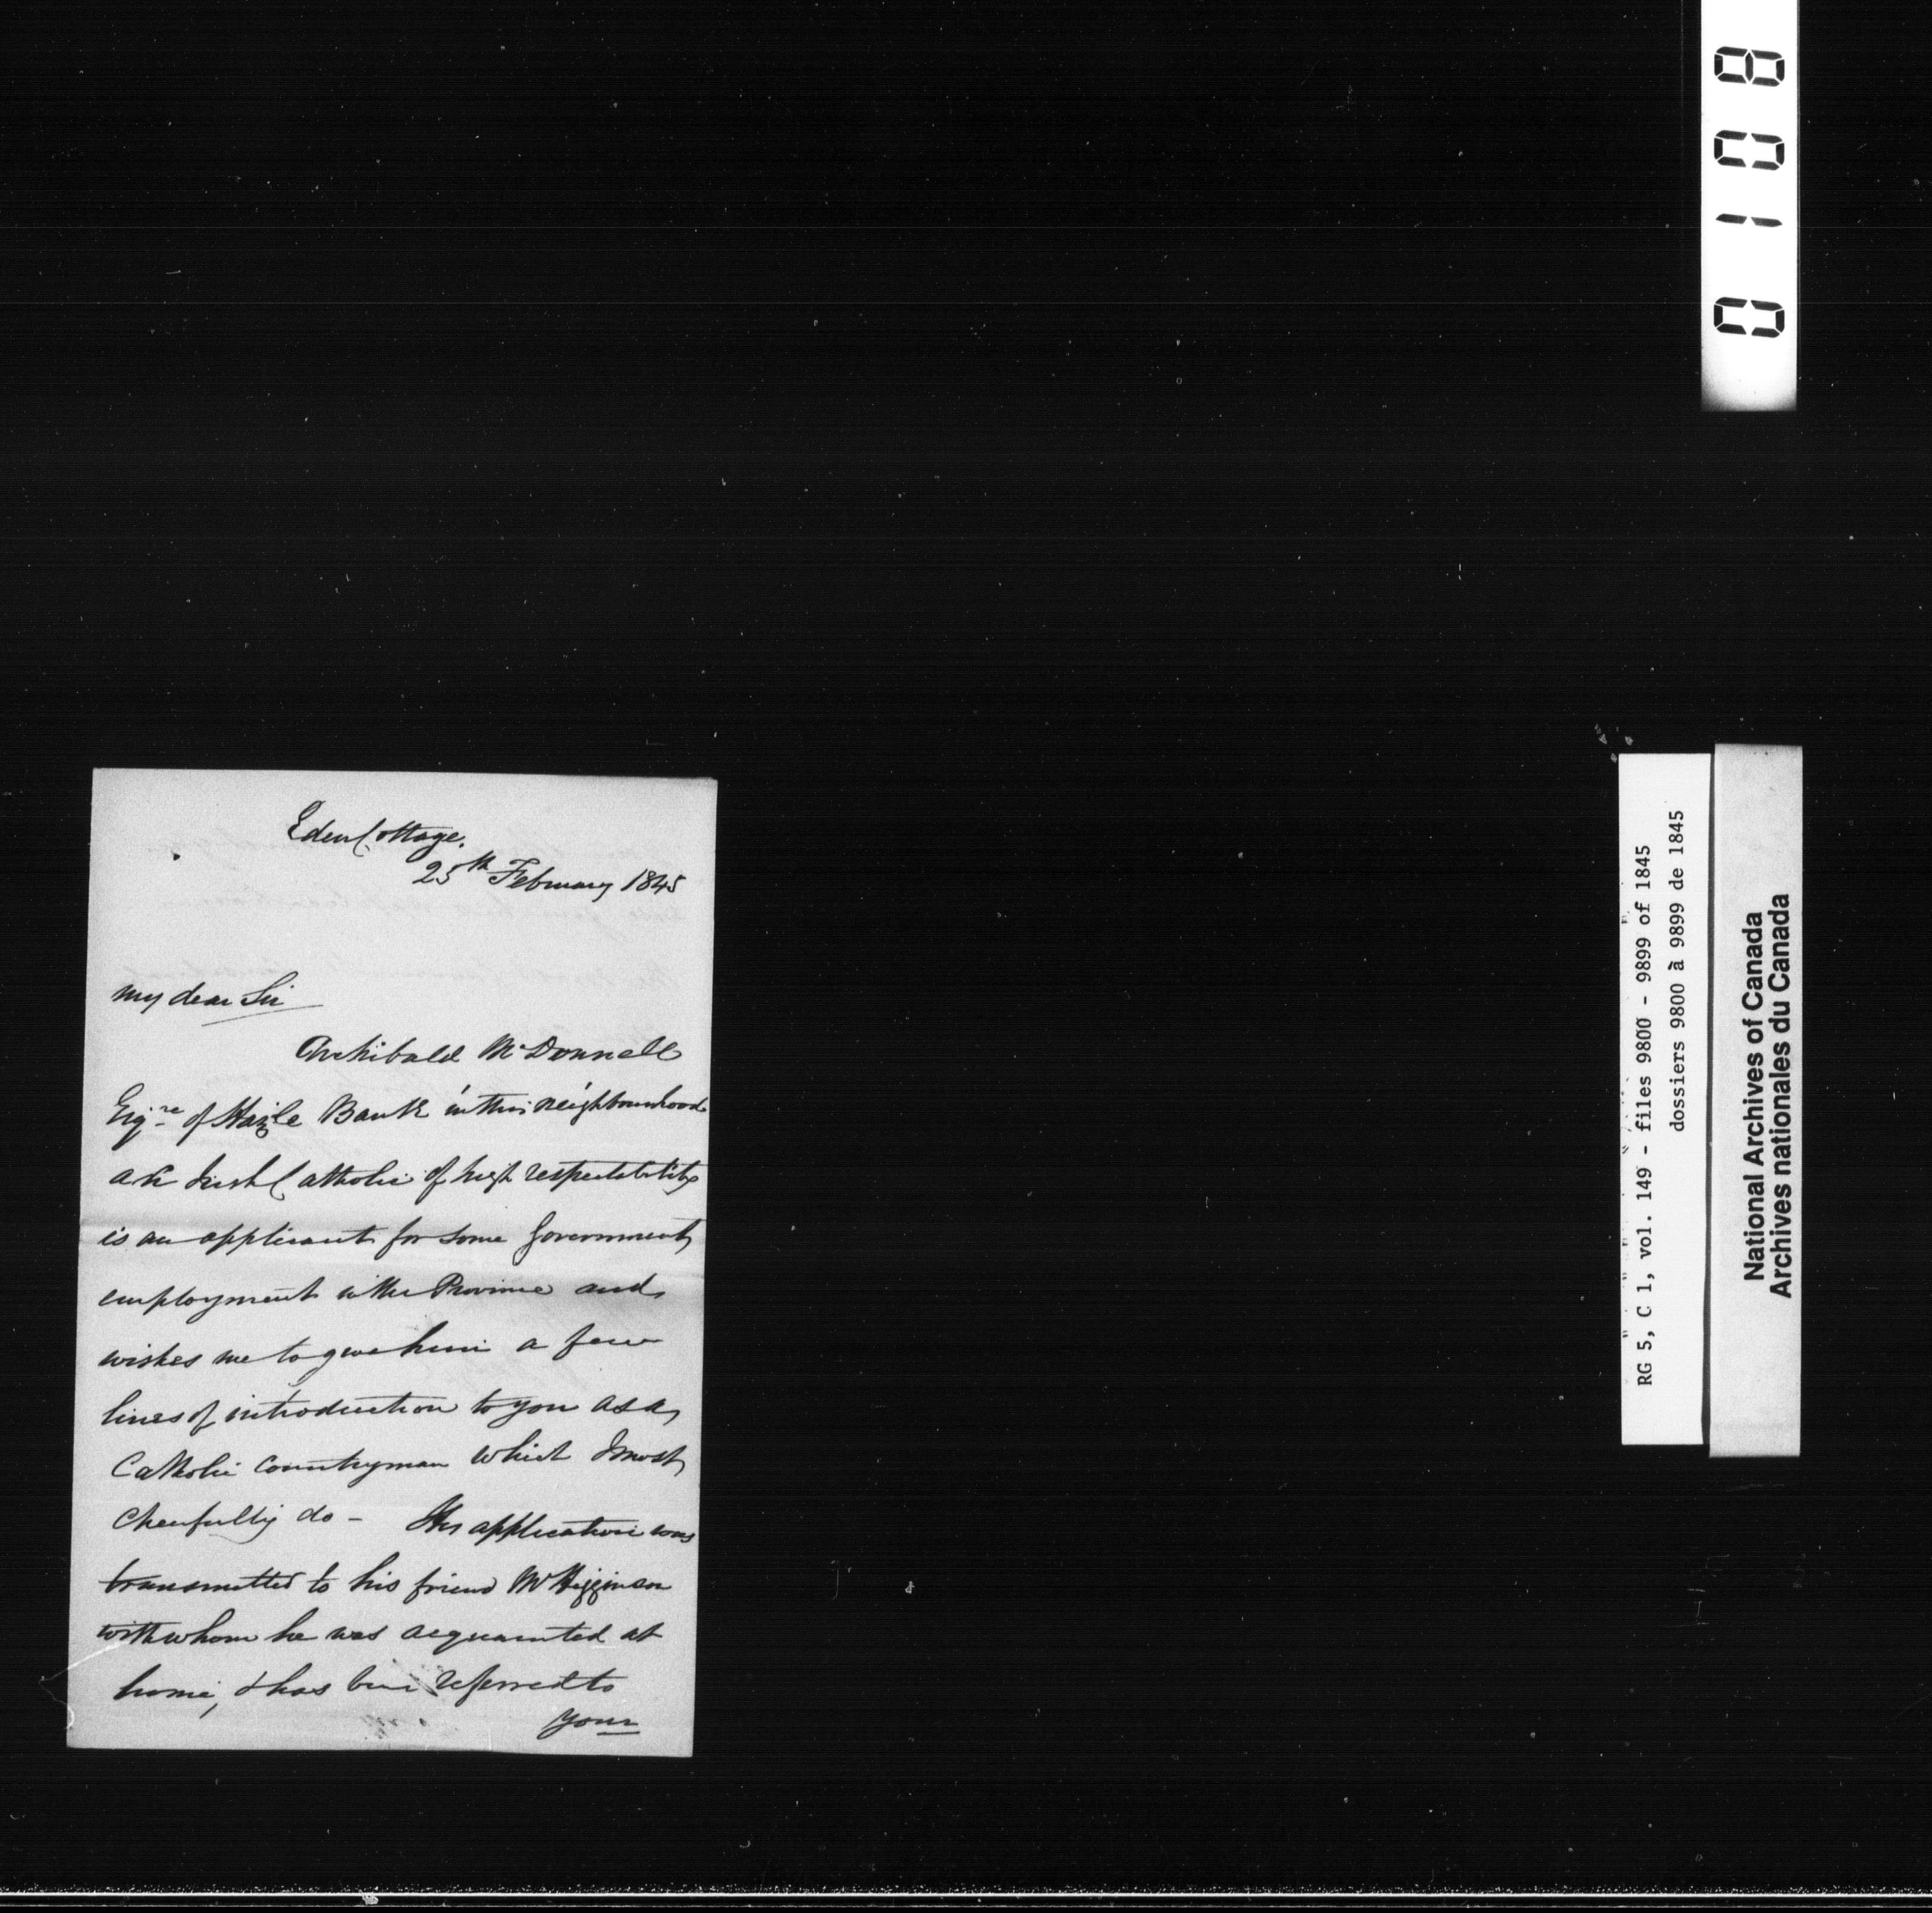 Eden Cottage.
25th February 1845
My dear Sir
Archibald McDonnell
Esqre of Hazle Bank in this neighbourhood
an Irish Catholic of high respectability
is an applicant for some Government
employment in the Province and
wishes me to give him a few
lines of introduction to you as a
Catholic Countryman which I most
Chearfully do - His application was
transmitted to his friend Mr Higginson
with whom he was acquainted at
home, & has been referred to
your
01108
RG 5, C 1, vol. 149 - files 9800 - 9899 of 1845
dossiers 9800 à 9899 de 1845
National Archives of Canada
Archives nationales du Canada